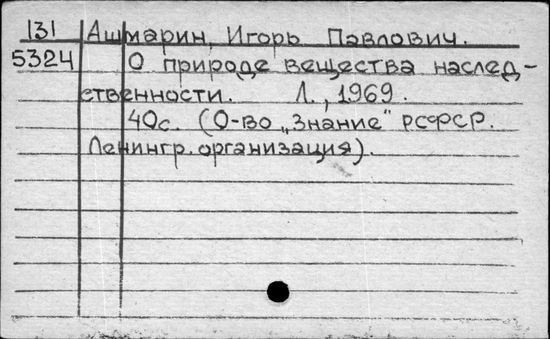 131 Ашмарин, Игорь Павлович.
5324 О природе вещества наслед-
ственности. Л., 1969.
40с. (О-во „Знание" РСФСР.
Ленингр. организация).